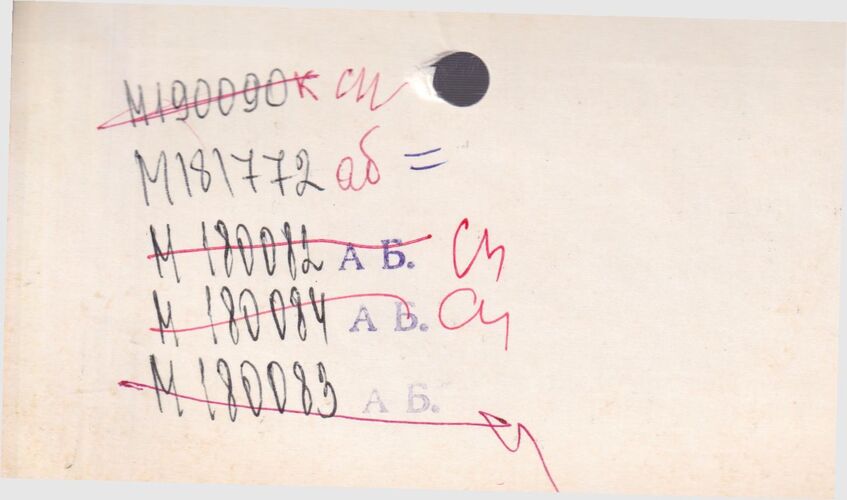 М190090к сп
М181772 аб =
М 180082 А Б. сп
М 180084 А Б. сп
М 180083 А Б.